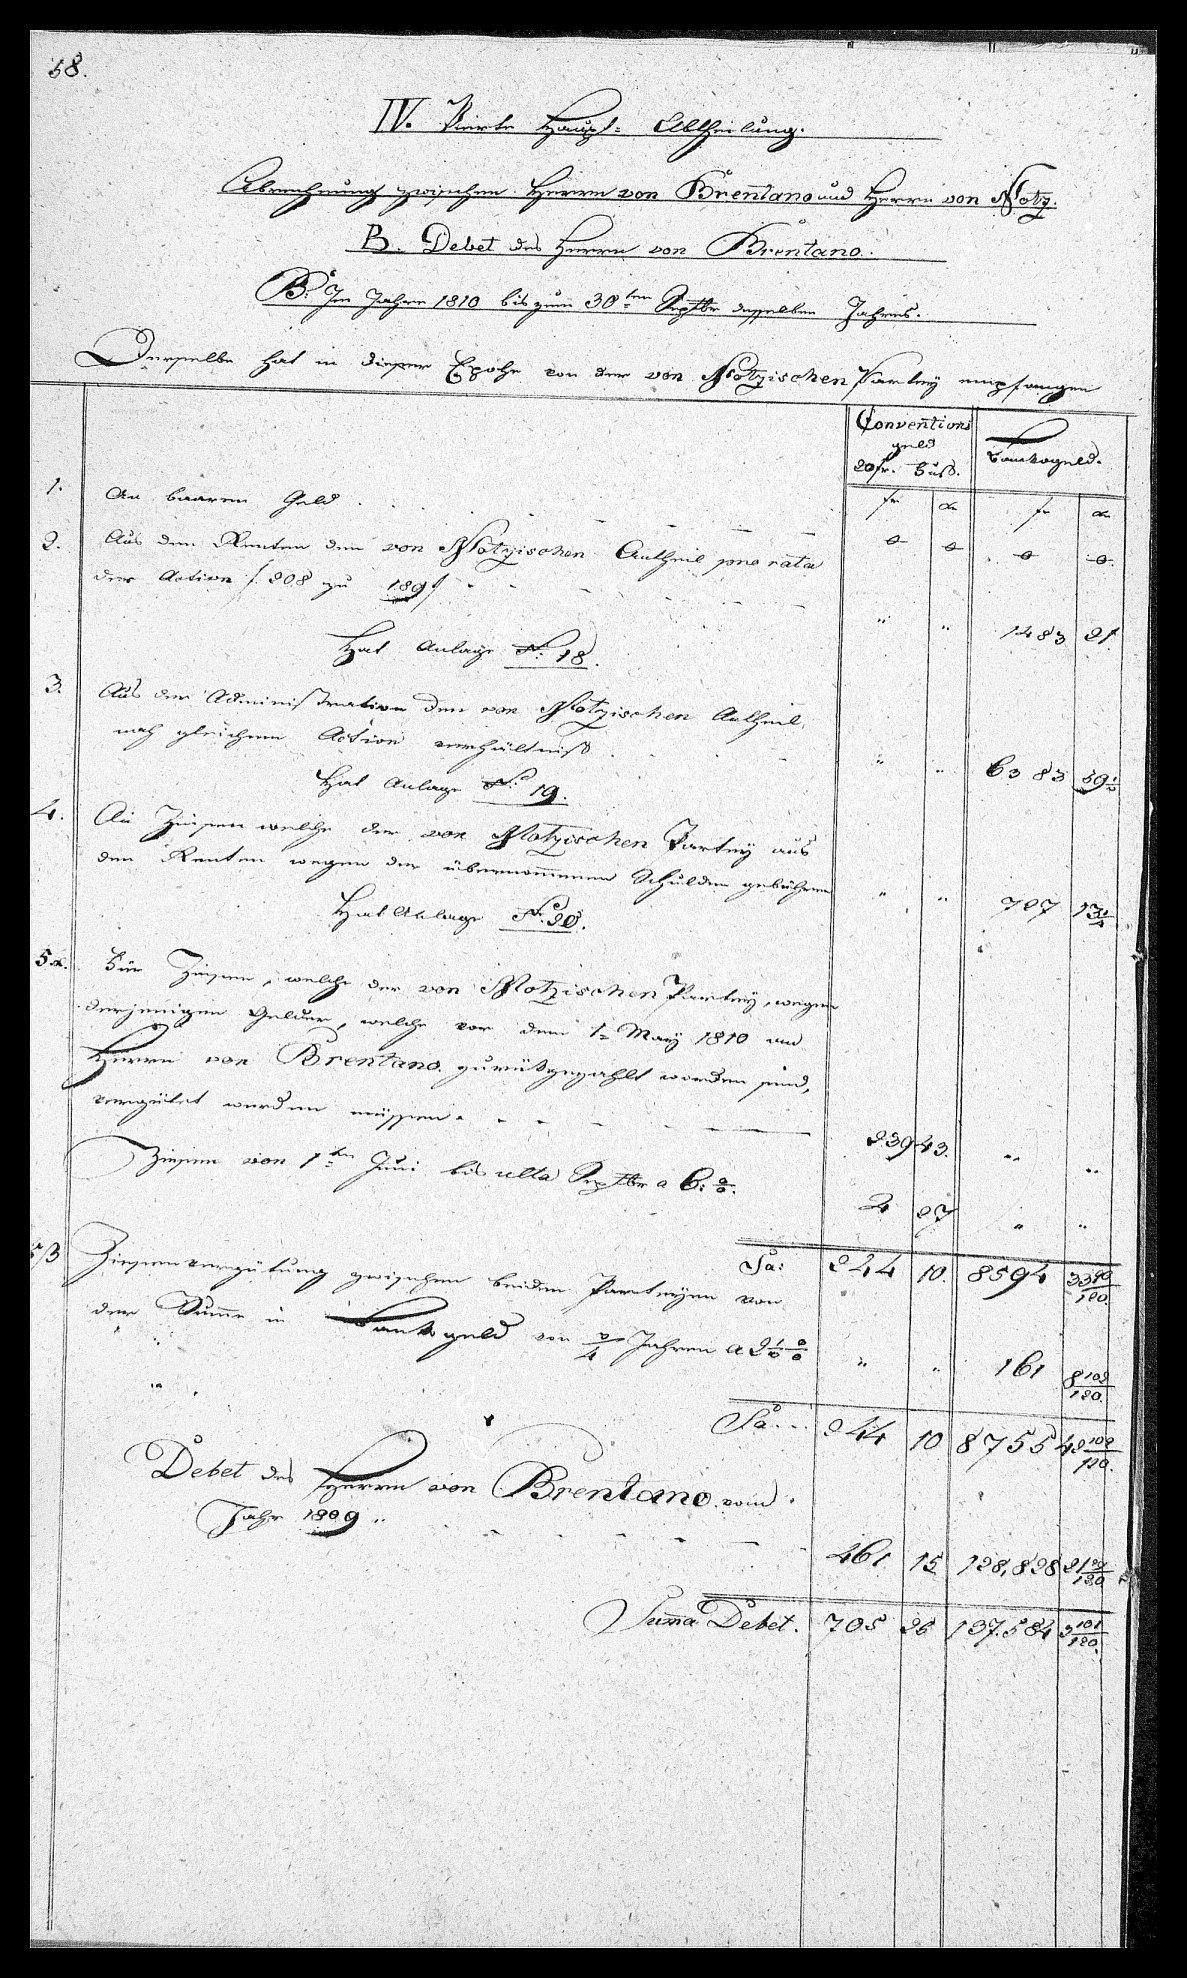 58.
IV. Vierte Haupt- Abtheilung.
Abrechnung zwischen Herrn von Brentano und Herrn von Notz.
B. Debet des Herrn von Brentano.
B. Im Jahre 1810 bis zum 30ten Septbr desselben Jahres.
Derselbe hat in dieser Epoche von der von Notzischen Partey empfangen
Conventions
geld
20 fr. Fuß.
Bankogeld.
fr
fr
1. An baarem Geld . . . 0 0 0 0.
2. Aus den Renten den von Notzischen Antheil pro rata
der Action 208 zu 189 " " 1483 21
Hat Anlage No 18.
3. Aus der Administration den von Notzischen Antheil
nach gleichem Action verhältniß . " " 6383 59 1/2
Hat Anlage No 19.
4. An Zinsen welche der von Notzischen Partey aus
den Renten wegen der übernommenen Schulden gebühren " " 727 13 1/4
Hat Anlage No 20.
5 α. Für Zinsen, welche der von Notzischen Partey, wegen
derjenigen Gelder, welche vor dem 1ten May 1810 an
Herrn von Brentano zurückgezahlt worden sind,
vergütet werden müssen. 239 43. " "
Zinsen von 1ten Juni bis ulta Septbr a 6 %. 4 27 " "
Sa: 244 10. 8594 33 90/120.
5 β Zinsenvergütung zwischen beiden Parteyen von
der Summe in Bankogeld von 3/4 Jahren a 2 1/2 % " " 161 8 102/120.
Sa . . . 244 10 8755 42 102/120.
Debet des Herrn von Brentano vom
Jahr 1809 . . 461 15 128,828 21 /120
Summa Debet. 705 25 137.584 3 101/120.